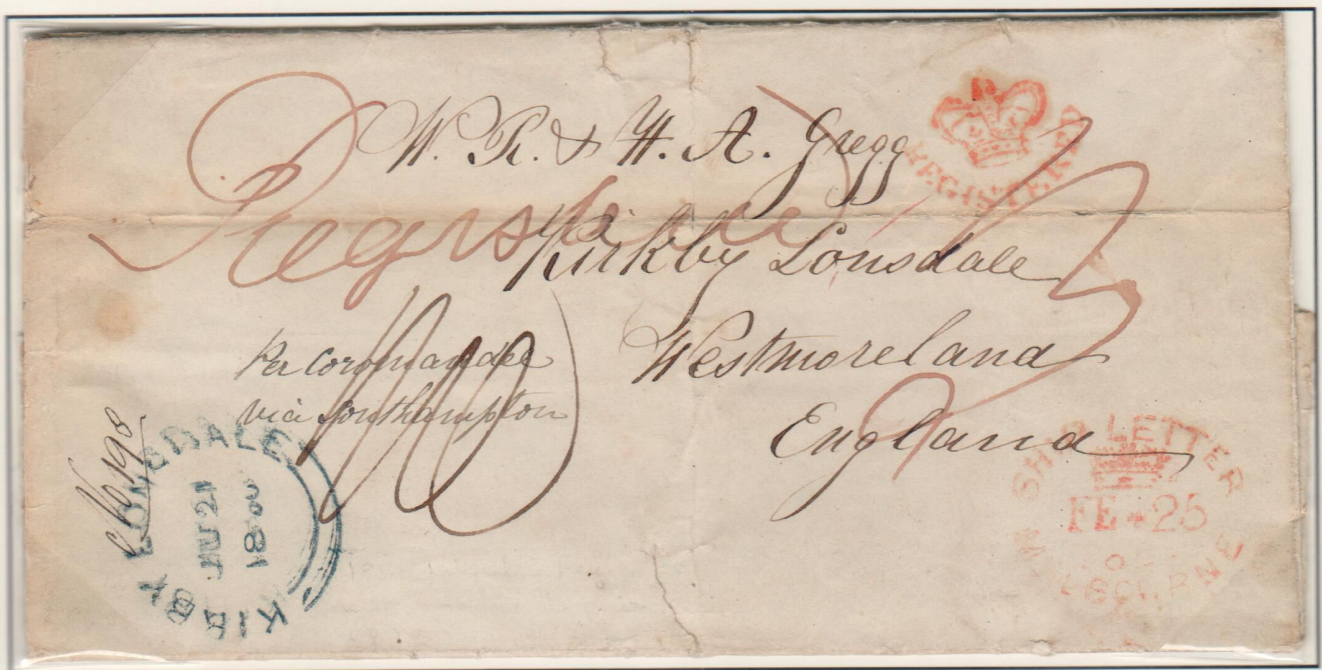 W. R. & H. A. Gregg
REGISTERED
Registered
Kirkby Lonsdale
Westmoreland
England
Per Coromandel
via Southampton
No 198
KIRBY LONSDALE
JU 21
SHIP LETTER
FE-25
MELBOURNE